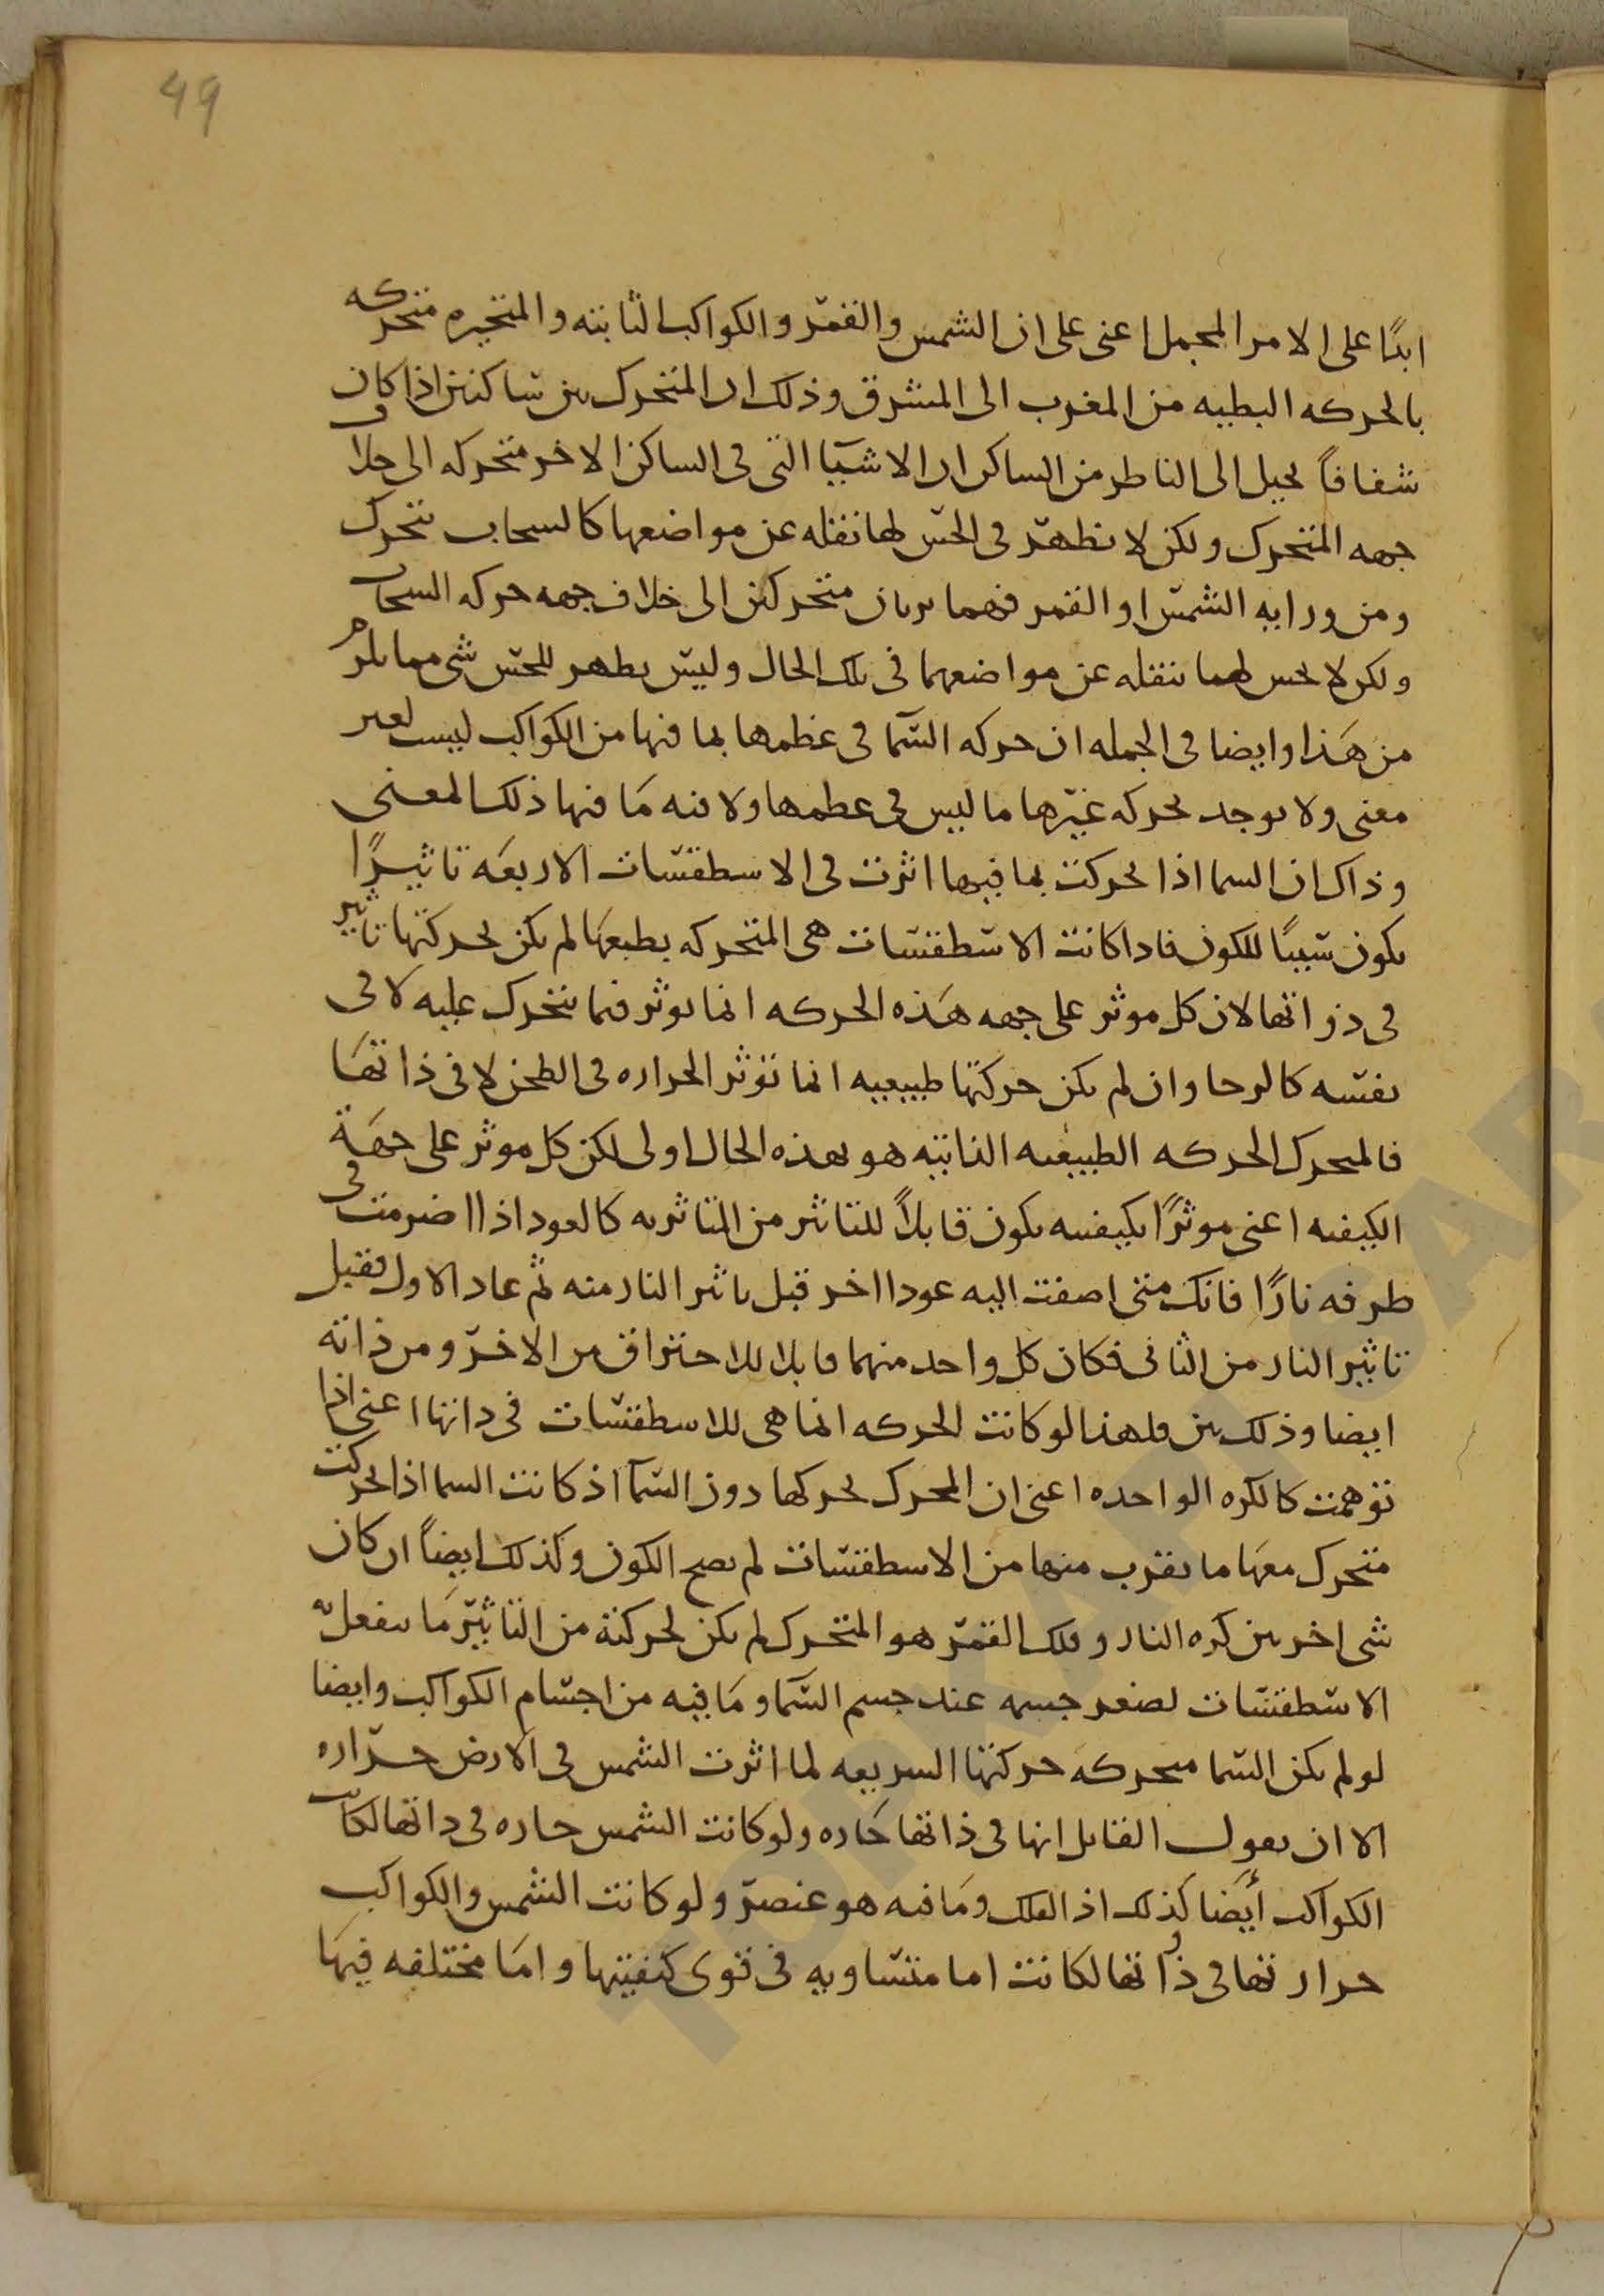 49
ابدًا على الامر المجمل اعنى على ان الشمس والقمر والكواكب الثابته والمتحيره متحركه
بالحركه البطيه من المغرب الى المشرق وذلك ان المتحرك بين ساكنين اذا كان
شفافاً يخيل الى الناظر من الساكن ان الاشيا التى فى الساكن الاخر متحركه الى خلاف
جهه المتحرك ولكن لا يظهر فى الحس لها نقله عن مواضعها كالسحاب يتحرك
ومن ورايه الشمس او القمر فهما يريان متحركين الى خلاف جهه حركه السحاب
ولكن لا يحس لهما نقله عن مواضعهما فى تلك الحال وليس يظهر للحس شى مما يلزم
من هذا وايضا فى الجمله ان حركه السما فى عظمها بما فيها من الكواكب ليست لغير
معنى ولا يوجد بحركه غيرها ما ليس فى عظمها ولا فيه ما فيها ذلك المعنى
وذاك ان السما اذا تحركت بما فيها اثرت فى الاسطقسات الاربعه تاثيرًا
يكون سببًا للكون فاذا كانت الاسطقسات هى المتحركه بطبعها لم يكن لحركتها تاثير
فى ذواتها لان كل موثر على جهه هذه الحركه انما يوثر فيما يتحرك عليه لا فى
نفسه كالرحا وان لم يكن حركتها طبيعيه انما توثر الحراره فى الطحن لا فى ذاتها
فالمتحرك الحركه الطبيعيه الذاتيه هو بهذه الحال اولى لكن كل موثر على جهة
الكيفيه اعنى موثرًا بكيفيه يكون قابلاً للتاثر من المتاثر به كالعود اذا اضرمت فى
طرفه نارًا فانك متى اضفت اليه عودا اخر قبل تاثير النار منه ثم عاد الاول فقبل
تاثير النار من الثانى فكان كل واحد منهما قابلا للاحتراق من الاخر ومن ذاته
ايضا وذلك بين فلهذا لو كانت الحركه انما هى للاسطقسات فى ذاتها اعنى اذا
توهمت كالكره الواحده اعنى ان المحرك يحركها دون السما اذ كانت السما اذا تحركت
متحرك معها ما يقرب منها من الاسطقسات لم يصح الكون وكذلك ايضاً ان كان
شى اخر بين كره النار وفلك القمر هو المتحرك لم يكن لحركته من التاثير ما ينفعل به
الاسطقسات لصغر جسمه عند جسم السما وما فيه من اجسام الكواكب وايضا
لو لم يكن السما متحركه حركتها السريعه لما اثرت الشمس فى الارض حراره
الا ان يقول القايل انها فى ذاتها حاره ولو كانت الشمس حاره فى ذاتها لكانت
الكواكب أيضا كذلك اذ الفلك وما فيه هو عنصر ولو كانت الشمس والكواكب
حرارتها فى ذواتها لكانت اما متساويه فى قوى كيفيتها واما مختلفه فيها